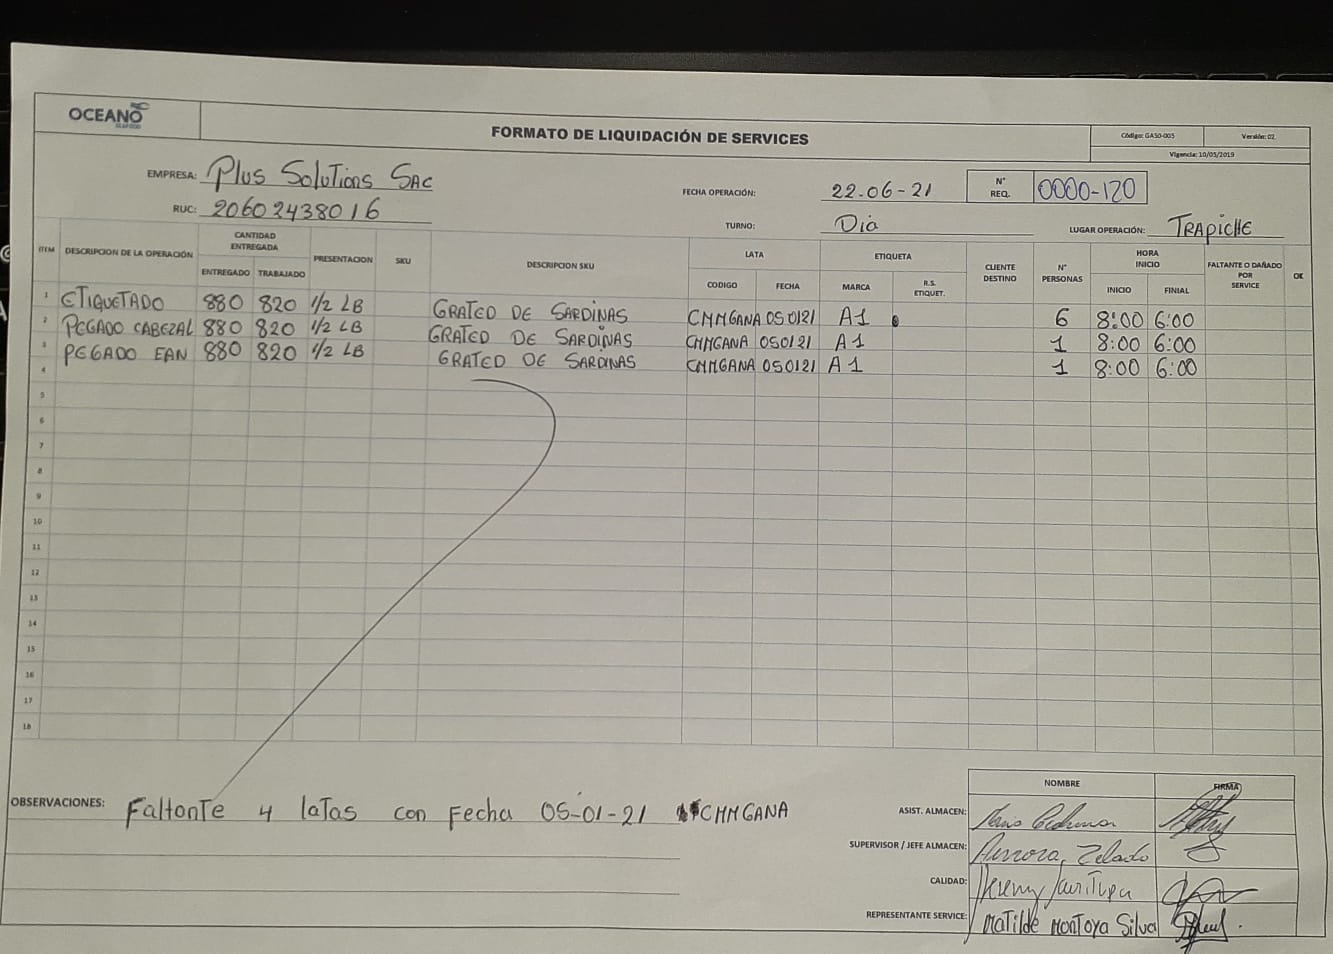 OCEANO
SEAFOOD
FORMATO DE LIQUIDACIÓN DE SERVICES
Código: GASO-005 Versión: 02
Vigencia: 10/05/2019
EMPRESA: Plus Solutions SAC
FECHA OPERACIÓN: 22-06-21
N° REQ. 0000-120
RUC: 20602438016
TURNO: Dia
LUGAR OPERACIÓN: TRAPICHE
ITEM DESCRIPCION DE LA OPERACIÓN CANTIDAD ENTREGADA PRESENTACION SKU DESCRIPCION SKU LATA ETIQUETA CLIENTE DESTINO N° PERSONAS HORA INICIO FALTANTE O DAÑADO POR SERVICE OK
ENTREGADO TRABAJADO CODIGO FECHA MARCA R.S. ETIQUET. INICIO FINIAL
1 ETIQUETADO 880 820 1/2 LB GRATED DE SARDINAS CHMGANA 050121 A1 6 8:00 6:00
2 PEGADO CABEZAL 880 820 1/2 LB GRATED DE SARDINAS CHMGANA 050121 A1 1 8:00 6:00
3 PEGADO EAN 880 820 1/2 LB GRATED DE SARDINAS CHMGANA 050121 A1 1 8:00 6:00
4
5
6
7
8
9
10
11
12
13
14
15
16
17
18
OBSERVACIONES: Faltante 4 latas con Fecha 05-01-21 CHMGANA
NOMBRE FIRMA
ASIST. ALMACEN:
SUPERVISOR / JEFE ALMACEN: Aurora Zelado
CALIDAD:
REPRESENTANTE SERVICE: Matilde Montoya Silva